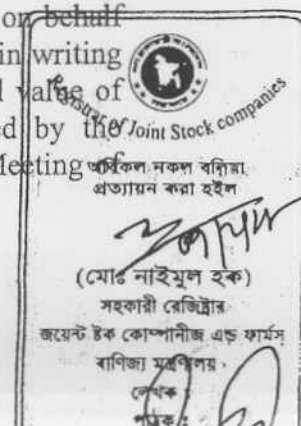 on behalf
in writing
value of
ed by the
Meeting of
Registrar of Joint Stock companies
অবিকল নকল বলিয়া
প্রত্যায়ন করা হইল
(মোঃ নাইমুল হক)
সহকারী রেজিষ্ট্রার
জয়েন্ট ষ্টক কোম্পানীজ এন্ড ফার্মস
বাণিজ্য মন্ত্রণালয়
লেখক :
পাঠক :